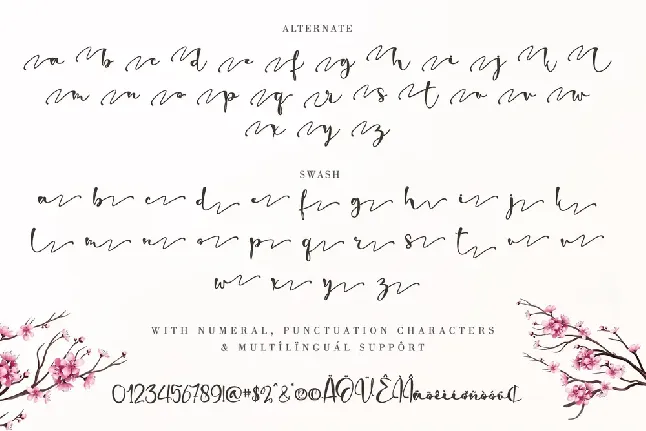 ALTERNATE
a b c d e f g h i j k l
m n o p q r s t u v w
x y z
SWASH
a b c d e f g h i j k
l m n o p q r s t u v
w x y z
WITH NUMERAL, PUNCTUATION CHARACTERS
& MULTÍLÏNGUÁL SUPPÔRT
0123456789!@#$